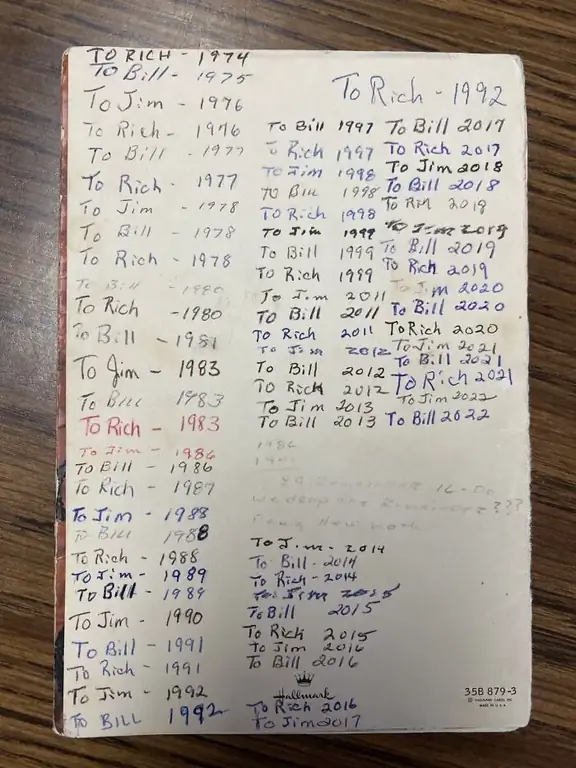 TO RICH - 1974
To Bill - 1975
To Jim - 1976
To Rich - 1976
To Bill - 1977
To Rich - 1977
To Jim - 1978
To Bill - 1978
To Rich - 1978
To Bill - 1980
To Rich - 1980
To Bill - 1981
To Jim - 1983
To Bill 1983
To Rich - 1983
To Jim - 1986
To Bill - 1986
To Rich - 1987
To Jim - 1988
To Bill 1988
To Rich - 1988
To Jim - 1989
To Bill - 1989
To Jim - 1990
To Bill - 1991
To Rich - 1991
To Jim - 1992
To BILL 1992
To Rich - 1992
To Bill 1997
To Rich 1997
To Jim 1998
To Bill 1998
To Rich 1998
To Jim 1999
To Bill 1999
To Rich 1999
To Jim 2011
To Bill 2011
To Rich 2011
To Jim 2012
To Bill 2012
To Rich 2012
To Jim 2013
To Bill 2013
1986
To Jim - 2014
To Bill - 2014
To Rich - 2014
To Jim 2015
To Bill 2015
To Rich 2015
To Jim 2016
To Bill 2016
Hallmark
To Rich 2016
To Jim 2017
To Bill 2017
To Rich 2017
To Jim 2018
To Bill 2018
To Rich 2018
To Jim 2019
To Bill 2019
To Rich 2019
To Jim 2020
To Bill 2020
To Rich 2020
To Jim 2021
To Bill 2021
To Rich 2021
To Jim 2022
To Bill 2022
35B 879-3
© HALLMARK CARDS, INC.
MADE IN U.S.A.